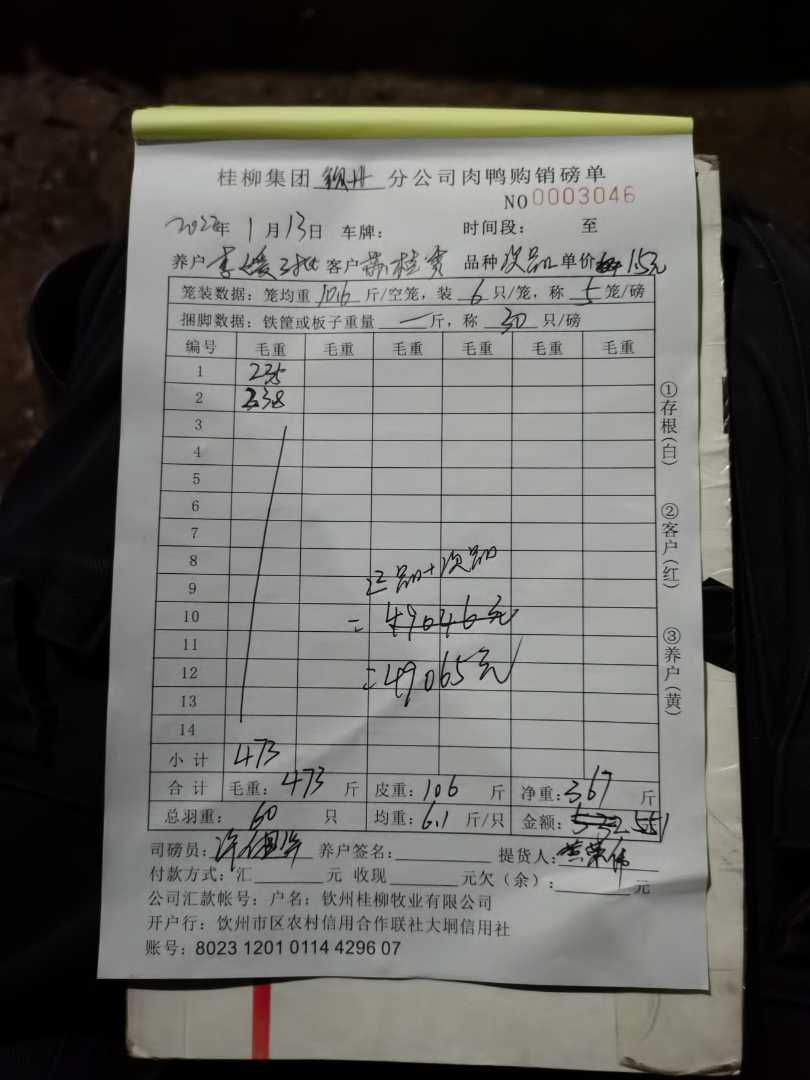 桂柳集团 钦州 分公司肉鸭购销磅单
NO 0003046
2022年 1月13日 车牌： 时间段： 至
养户 李 客户 苏桂 品种 次品 单价 1.5元
笼装数据：笼均重 10.6 斤/空笼，装 6 只/笼，称 5 笼/磅
捆脚数据：铁筐或板子重量 — 斤，称 30 只/磅
编号 毛重 毛重 毛重 毛重 毛重 毛重
1 235
2 238
3
4
5
6
7
8
正品+次品
9
10
=49046元
11
12
=49065元
13
14
小计 473
合计 毛重：473 斤 皮重：106 斤 净重：367 斤
总羽重：60 只 均重：6.1 斤/只 金额：532 551
司磅员：许 养户签名： 提货人：黄荣伟
付款方式：汇 元 收现 元欠（余）： 元
公司汇款帐号：户名：钦州桂柳牧业有限公司
开户行：钦州市区农村信用合作联社大垌信用社
账号：8023 1201 0114 4296 07
①存根(白)
②客户(红)
③养户(黄)